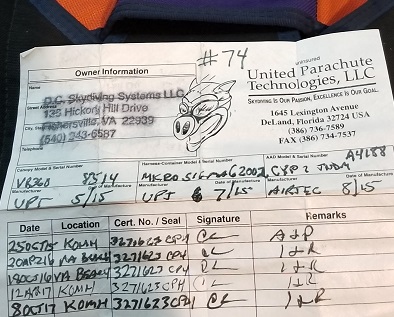 #74
uninsured
Owner Information
United Parachute
Technologies, LLC
Name
D.C. Skydiving Systems LLC
SKYDIVING IS OUR PASSION, EXCELLENCE IS OUR GOAL.
Street Address
135 Hickory Hill Drive
1645 Lexington Avenue
City, State
Fishersville, VA 22939
DeLand, Florida 32724 USA
(540) 243-6587
(386) 736-7589
Telephone
FAX (386) 734-7537
Canopy Model & Serial Number
Harness-Container Model & Serial Number
AAD Model & Serial Number
A4188
VR360 8514
MICRO SIGMA 62002
CYP 2
Manufacturer
Date of Manufacture
Manufacturer
Date of Manufacture
Manufacturer
Date of Manufacture
UPT 5/15
UPT 7/15
AIRTEC 8/15
Date
Location
Cert. No. / Seal
Signature
Remarks
25OCT15 KOMH 3271623 CPH A+P
20APR16 VA BEACH 3271623 CPH I+R
18OCT16 VA BEACH 3271623 CPH I+R
KOMH 3271623 CPH I+R
8OCT17 KOMH 3271623 CPH I+R